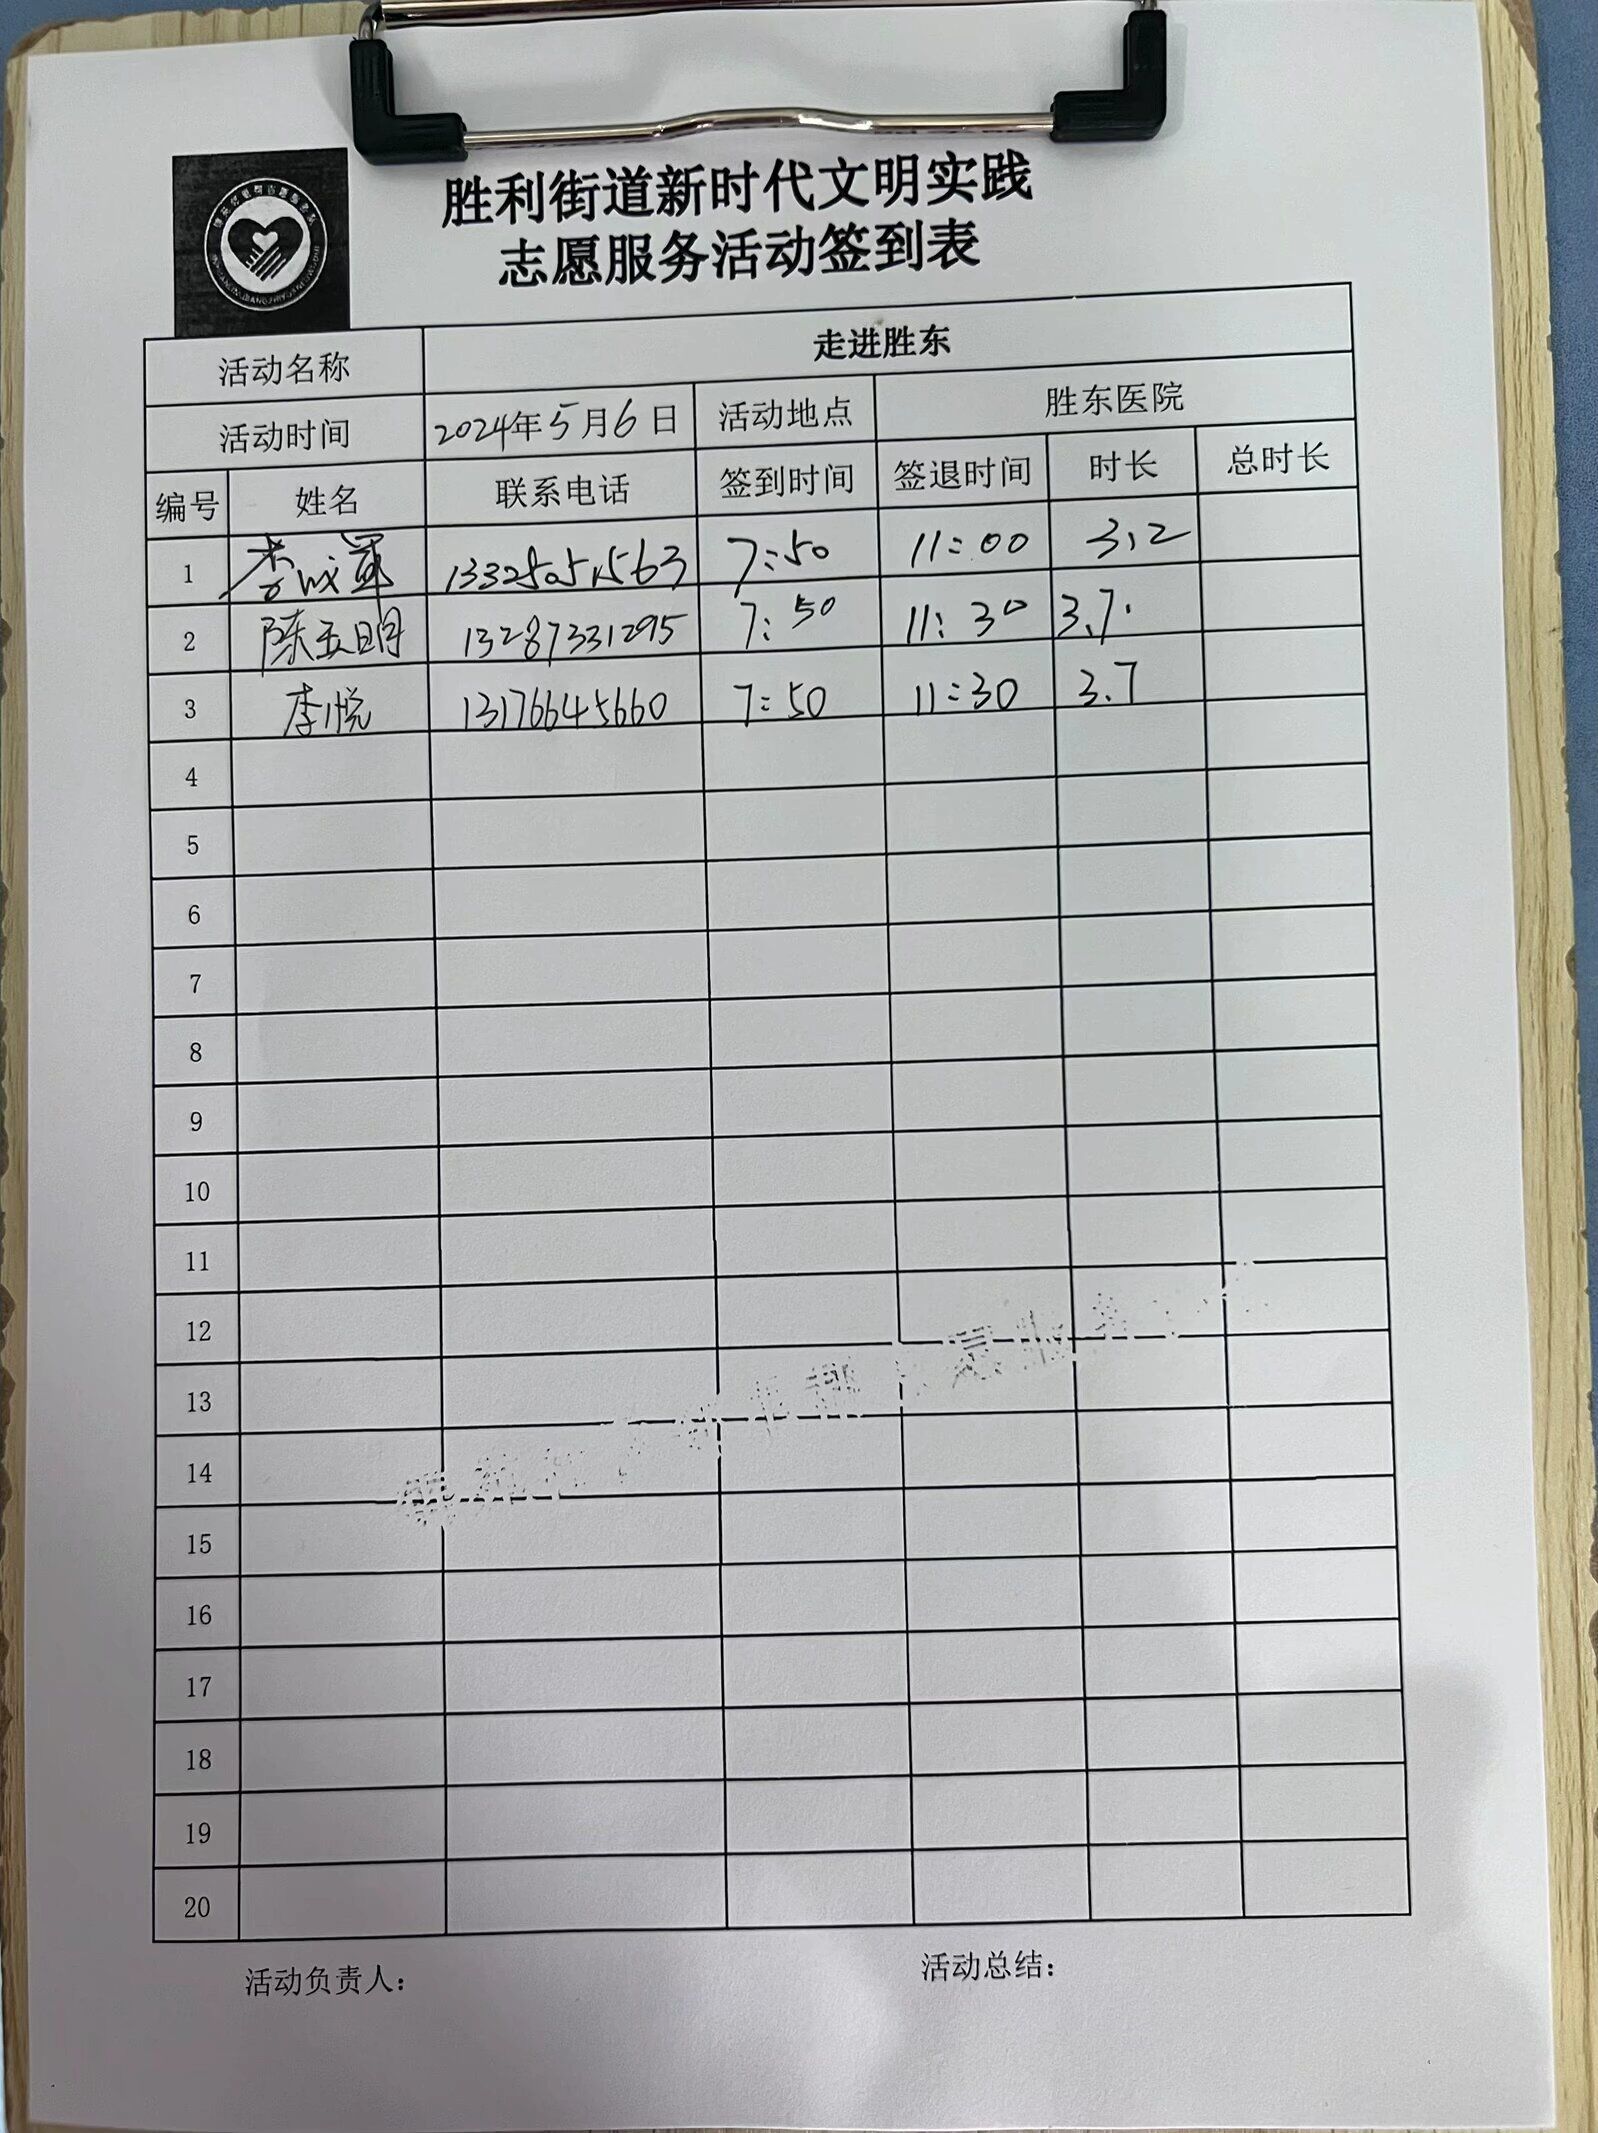 胜利街道新时代文明实践
志愿服务活动签到表
活动名称 走进胜东
活动时间 2024年5月6日 活动地点 胜东医院
编号 姓名 联系电话 签到时间 签退时间 时长 总时长
1 李成军 13325051563 7:50 11:00 3.2
2 陈玉明 13287331295 7:50 11:30 3.7.
3 李悦 13176645660 7:50 11:30 3.7
4
5
6
7
8
9
10
11
12
13
14
15
16
17
18
19
20
活动负责人: 活动总结: